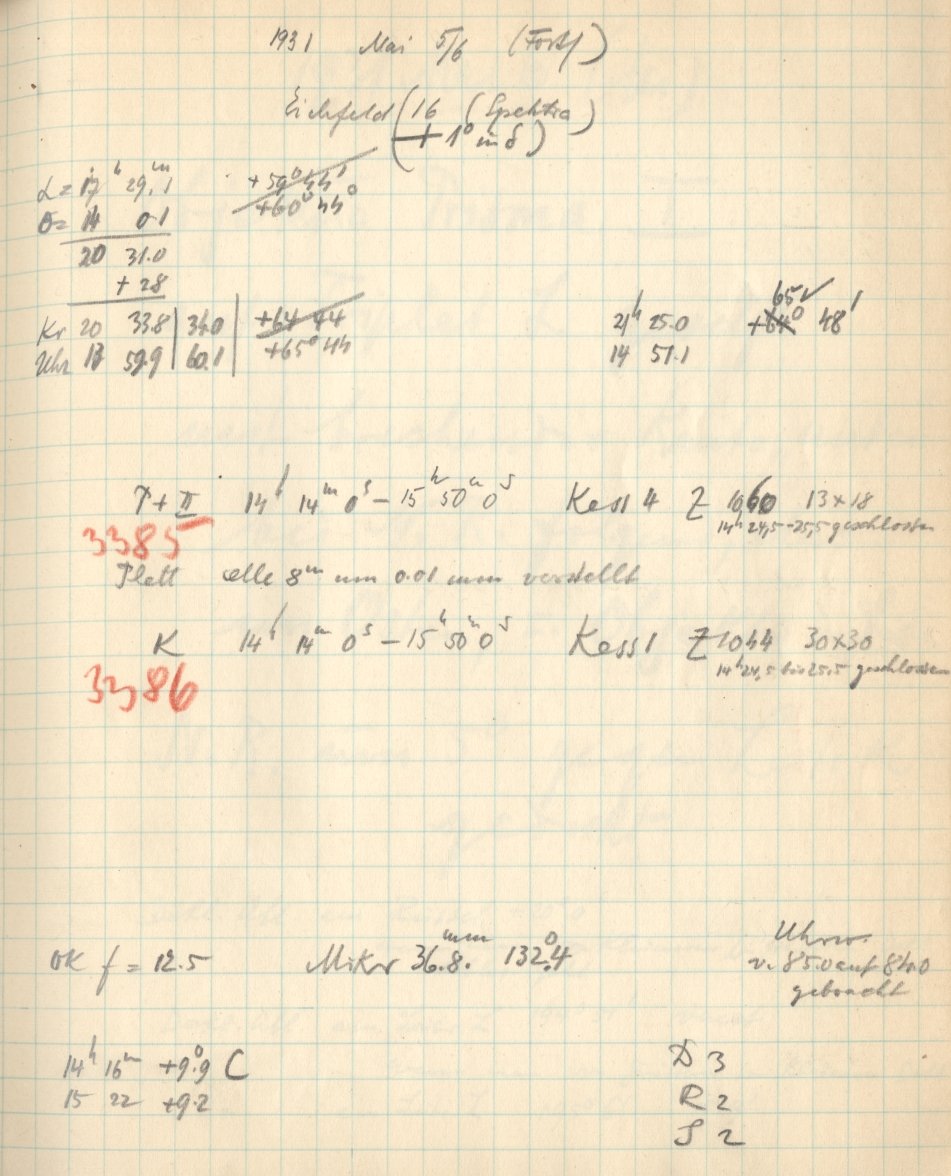 1931 Mai 5/6 (Forts)
Eichfeld 16 (Spektra)
(+ 1° in δ)
α = 17ʰ 29.1ᵐ +59° 44'
θ = 14 0.1 +60° 44°
20 31.0
+ 28
Kr 20 33.8 | 34.0 | +64 44 21ʰ 25.0 65✓ +64° 48'
Uhr 13 59.9 | 60.1 | +65° 44 14 51.1
T + II 14ʰ 14ᵐ 0ˢ – 15ʰ 50ᵐ 0ˢ Kass 4 Z 1060 13×18
14ʰ 24,5 – 25,5 geschlossen
3385
Platt alle 8ᵐ um 0.01 mm verstellt
K 14ʰ 14ᵐ 0ˢ – 15ʰ 50ᵐ 0ˢ Kass 1 Z 1044 30×30
14ʰ 24,5 bis 25.5 geschlossen
3386
OK f = 12.5 Mikr 36.8ᵐᵐ 132°.4 Uhrw.
v. 85.0 auf 84.0
gebracht
14ʰ 16ᵐ +9°.9 C D 3
15 22 +9.2 R 2
S 2